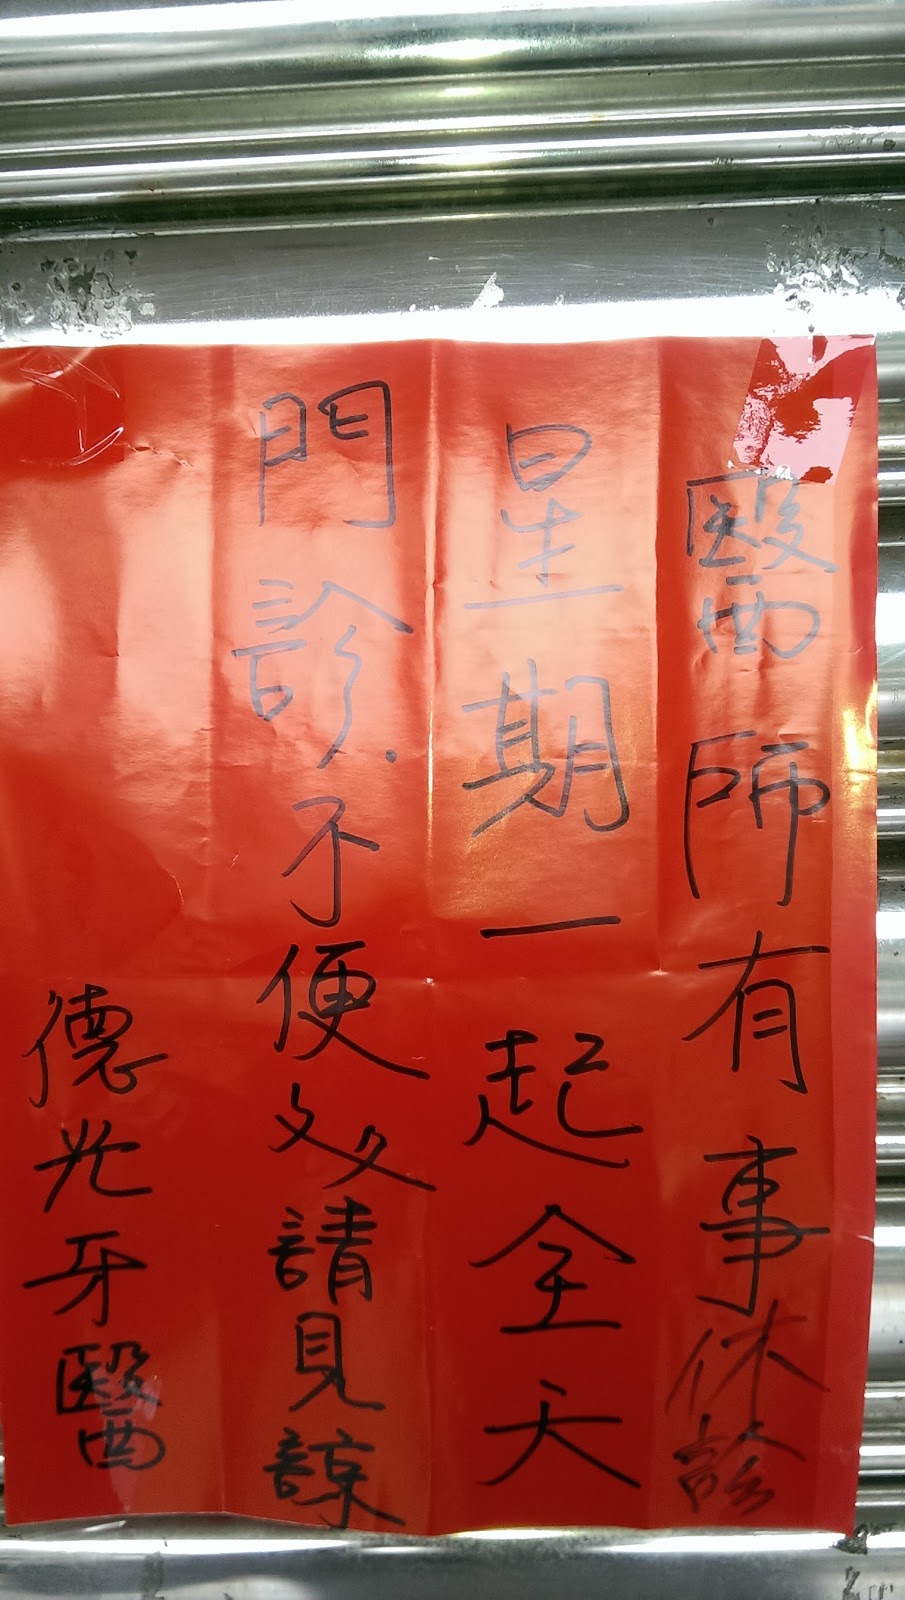 醫師有事休診
星期一起全天
門診.不便处請見諒
德光牙醫